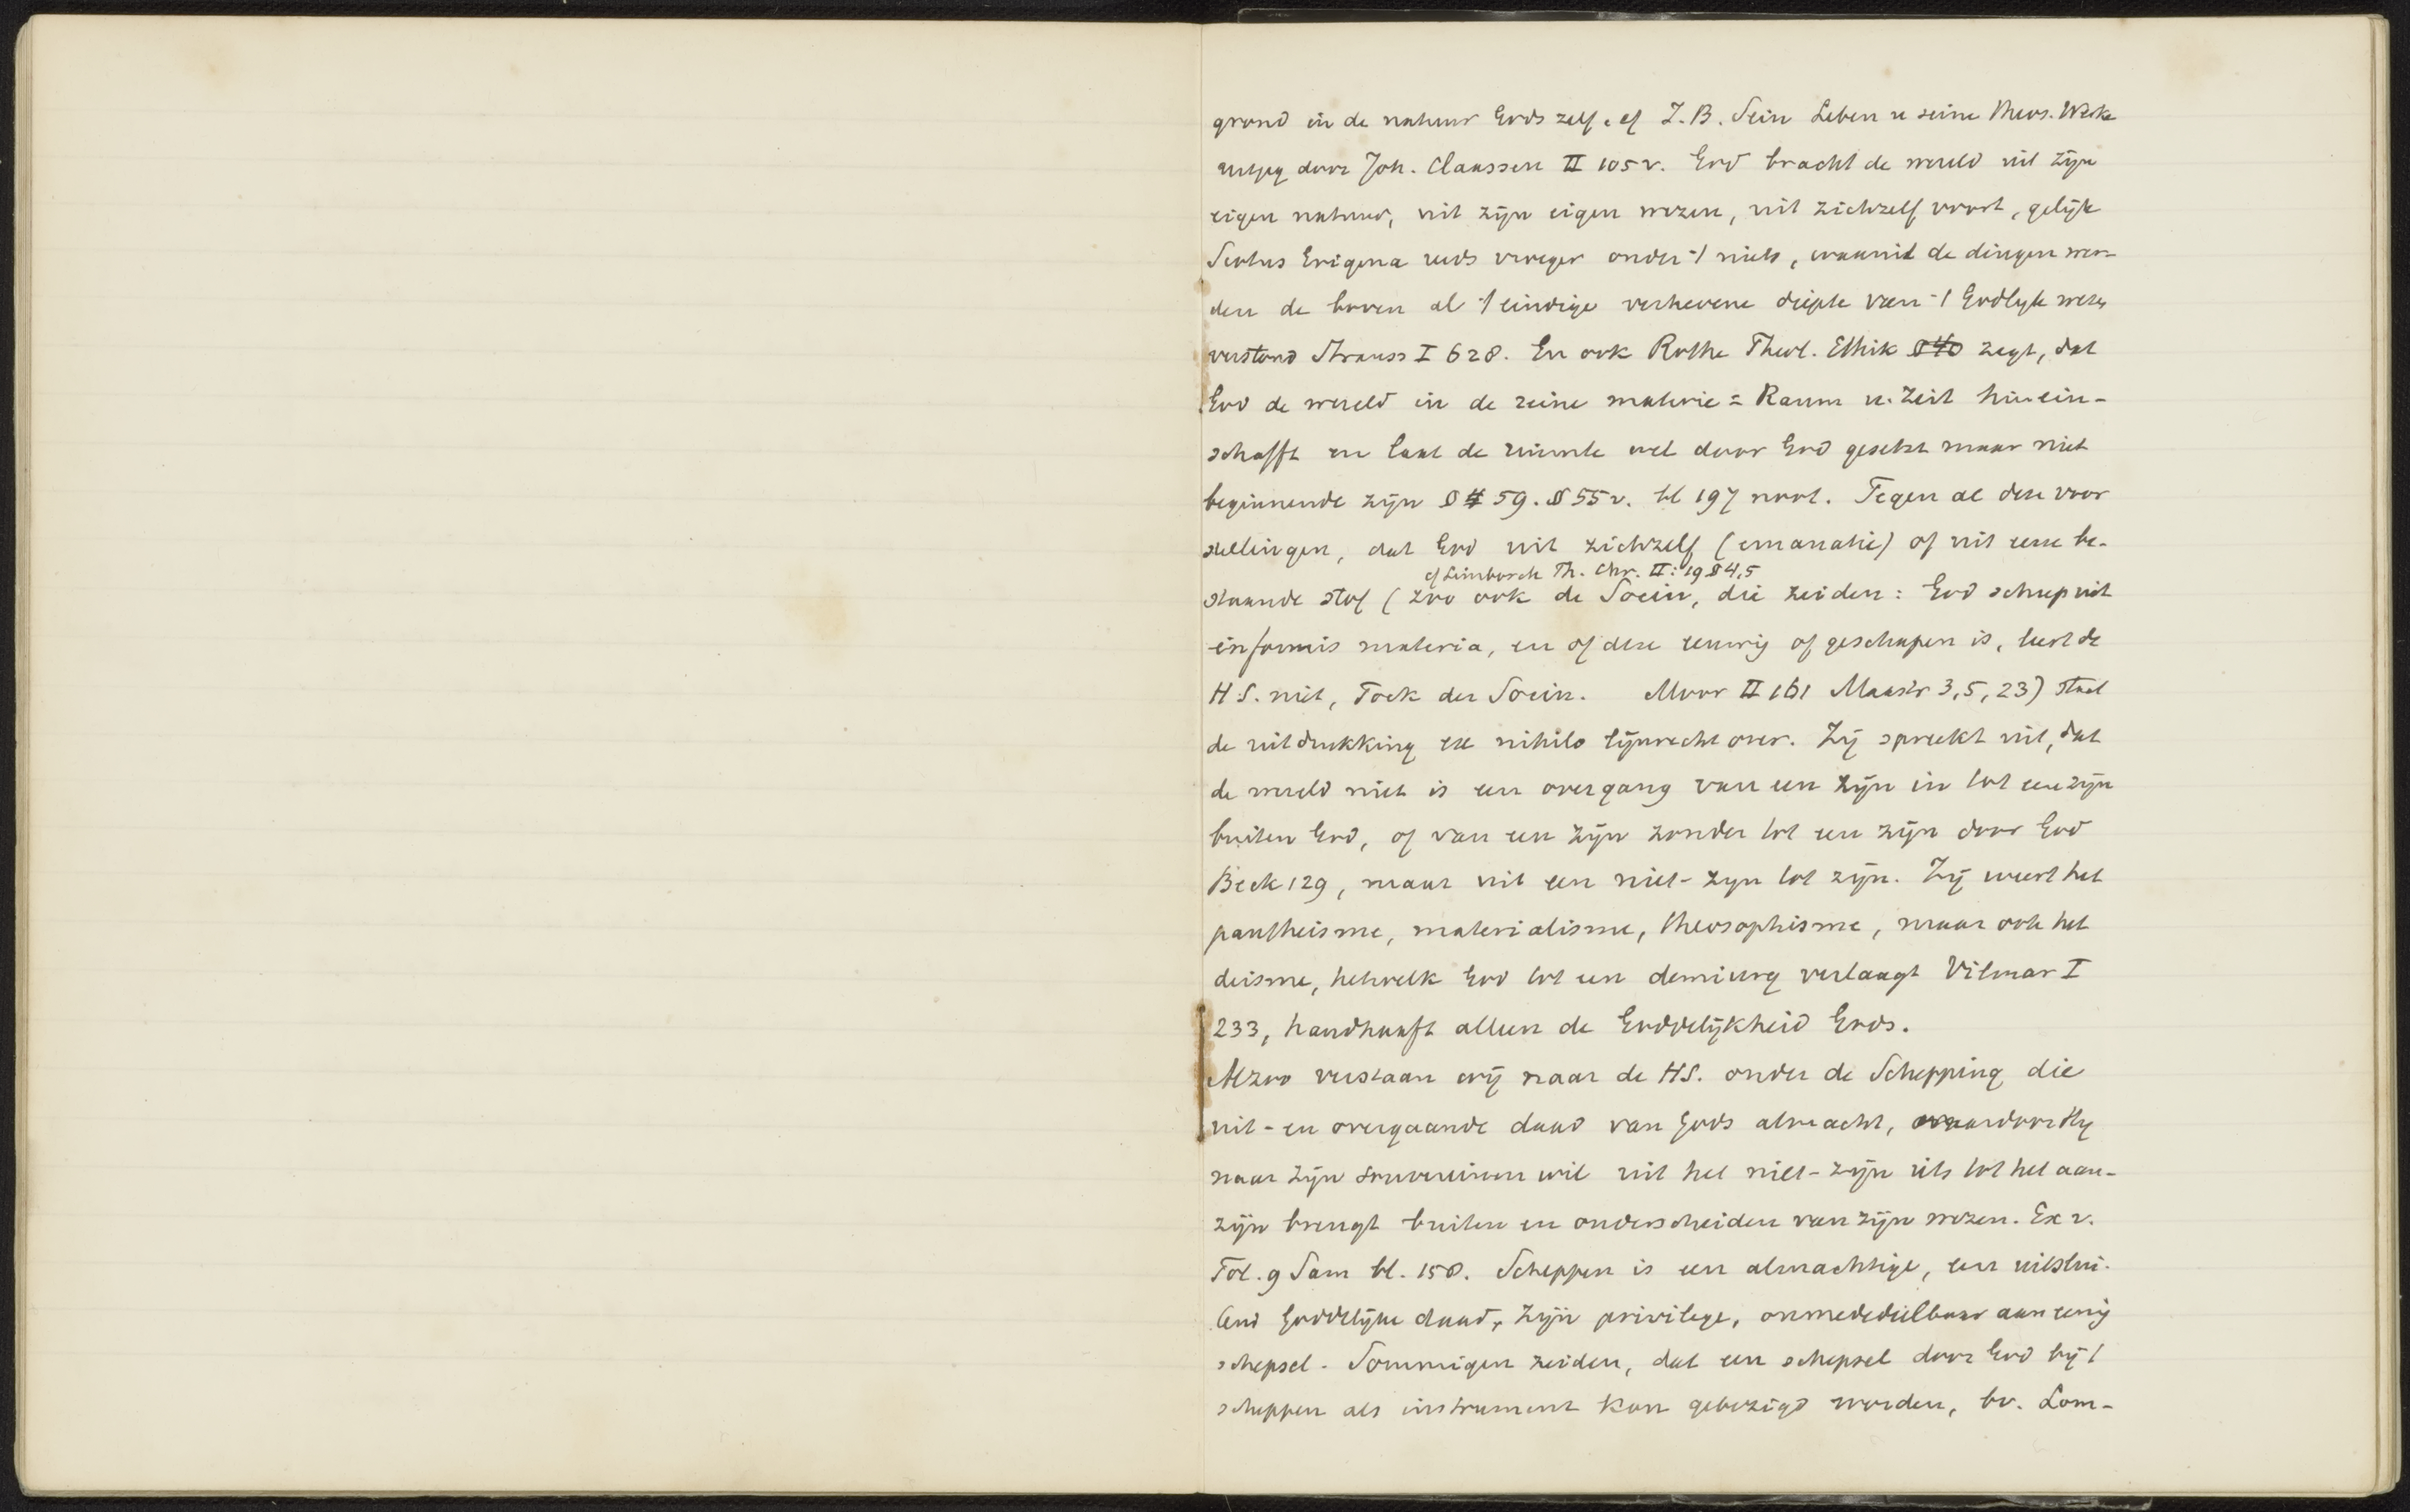 grond in de natuur Gods zelf. cf J.B. Sein Leben u seine theos. Werke
uitgeg door Joh. Claassen II 105 v. God bracht de wereld uit zijn
eigen natuur, uit zijn eigen wezen, uit zichzelf voort, gelijk
Scotus Erigena reeds vroeger onder 't niets, waaruit de dingen wer-
den de boven al 't eindige verhevene diepte van 't Godlyk wezen
verstond Strauss I 628. En ook Rothe Theol. Ethik § 40 zegt, dat
God de wereld in de reine materie = Raum u. Zeit hinein-
schafft en laat de ruimte wel door God gesetzt maar niet
beginnende zijn § 59. § 55 v. bl 197 noot. Tegen al deze voor
stellingen, dat God uit zichzelf (emanatie) of uit eene be-
cf Limborch Th. Chr. II: 19 § 4,5
staande stof (zoo ook de Socin, die zeiden: God schiep uit
informis materia, en of deze eeuwig of geschapen is, leert de
H S. niet, Fock der Socin. Moor II 161 Mastr 3,5,23) staat
de uitdrukking ex nihilo lijnrecht over. Zij spreekt uit, dat
de wereld niet is een overgang van een zijn in tot een zijn
buiten God, of van een zijn zonder tot een zijn door God
Beck 129, maar uit een niet-zyn tot zijn. Zij weert het
pantheisme, materialisme, theosophisme, maar ook het
deisme, hetwelk God tot een demiurg verlaagt Vilmar I
233, handhaaft alleen de Goddelijkheid Gods.
Alzoo verstaan wij naar de HS. onder de Schepping die
uit- en overgaande daad van Gods almacht, waardoor Hij
naar zijn souvereinen wil uit het niet-zijn iets tot het aan-
zijn brengt buiten en onderscheiden van zijn wezen. Ex v.
Tol. 9 Sam bl. 158. Scheppen is een almachtige, een uitslui-
tend goddelijke daad, zijn privilege, onmededeelbaar aan eenig
schepsel. Sommigen zeiden, dat een schepsel door God bij 't
scheppen als instrument kon gebezigd worden, bv. Lom-